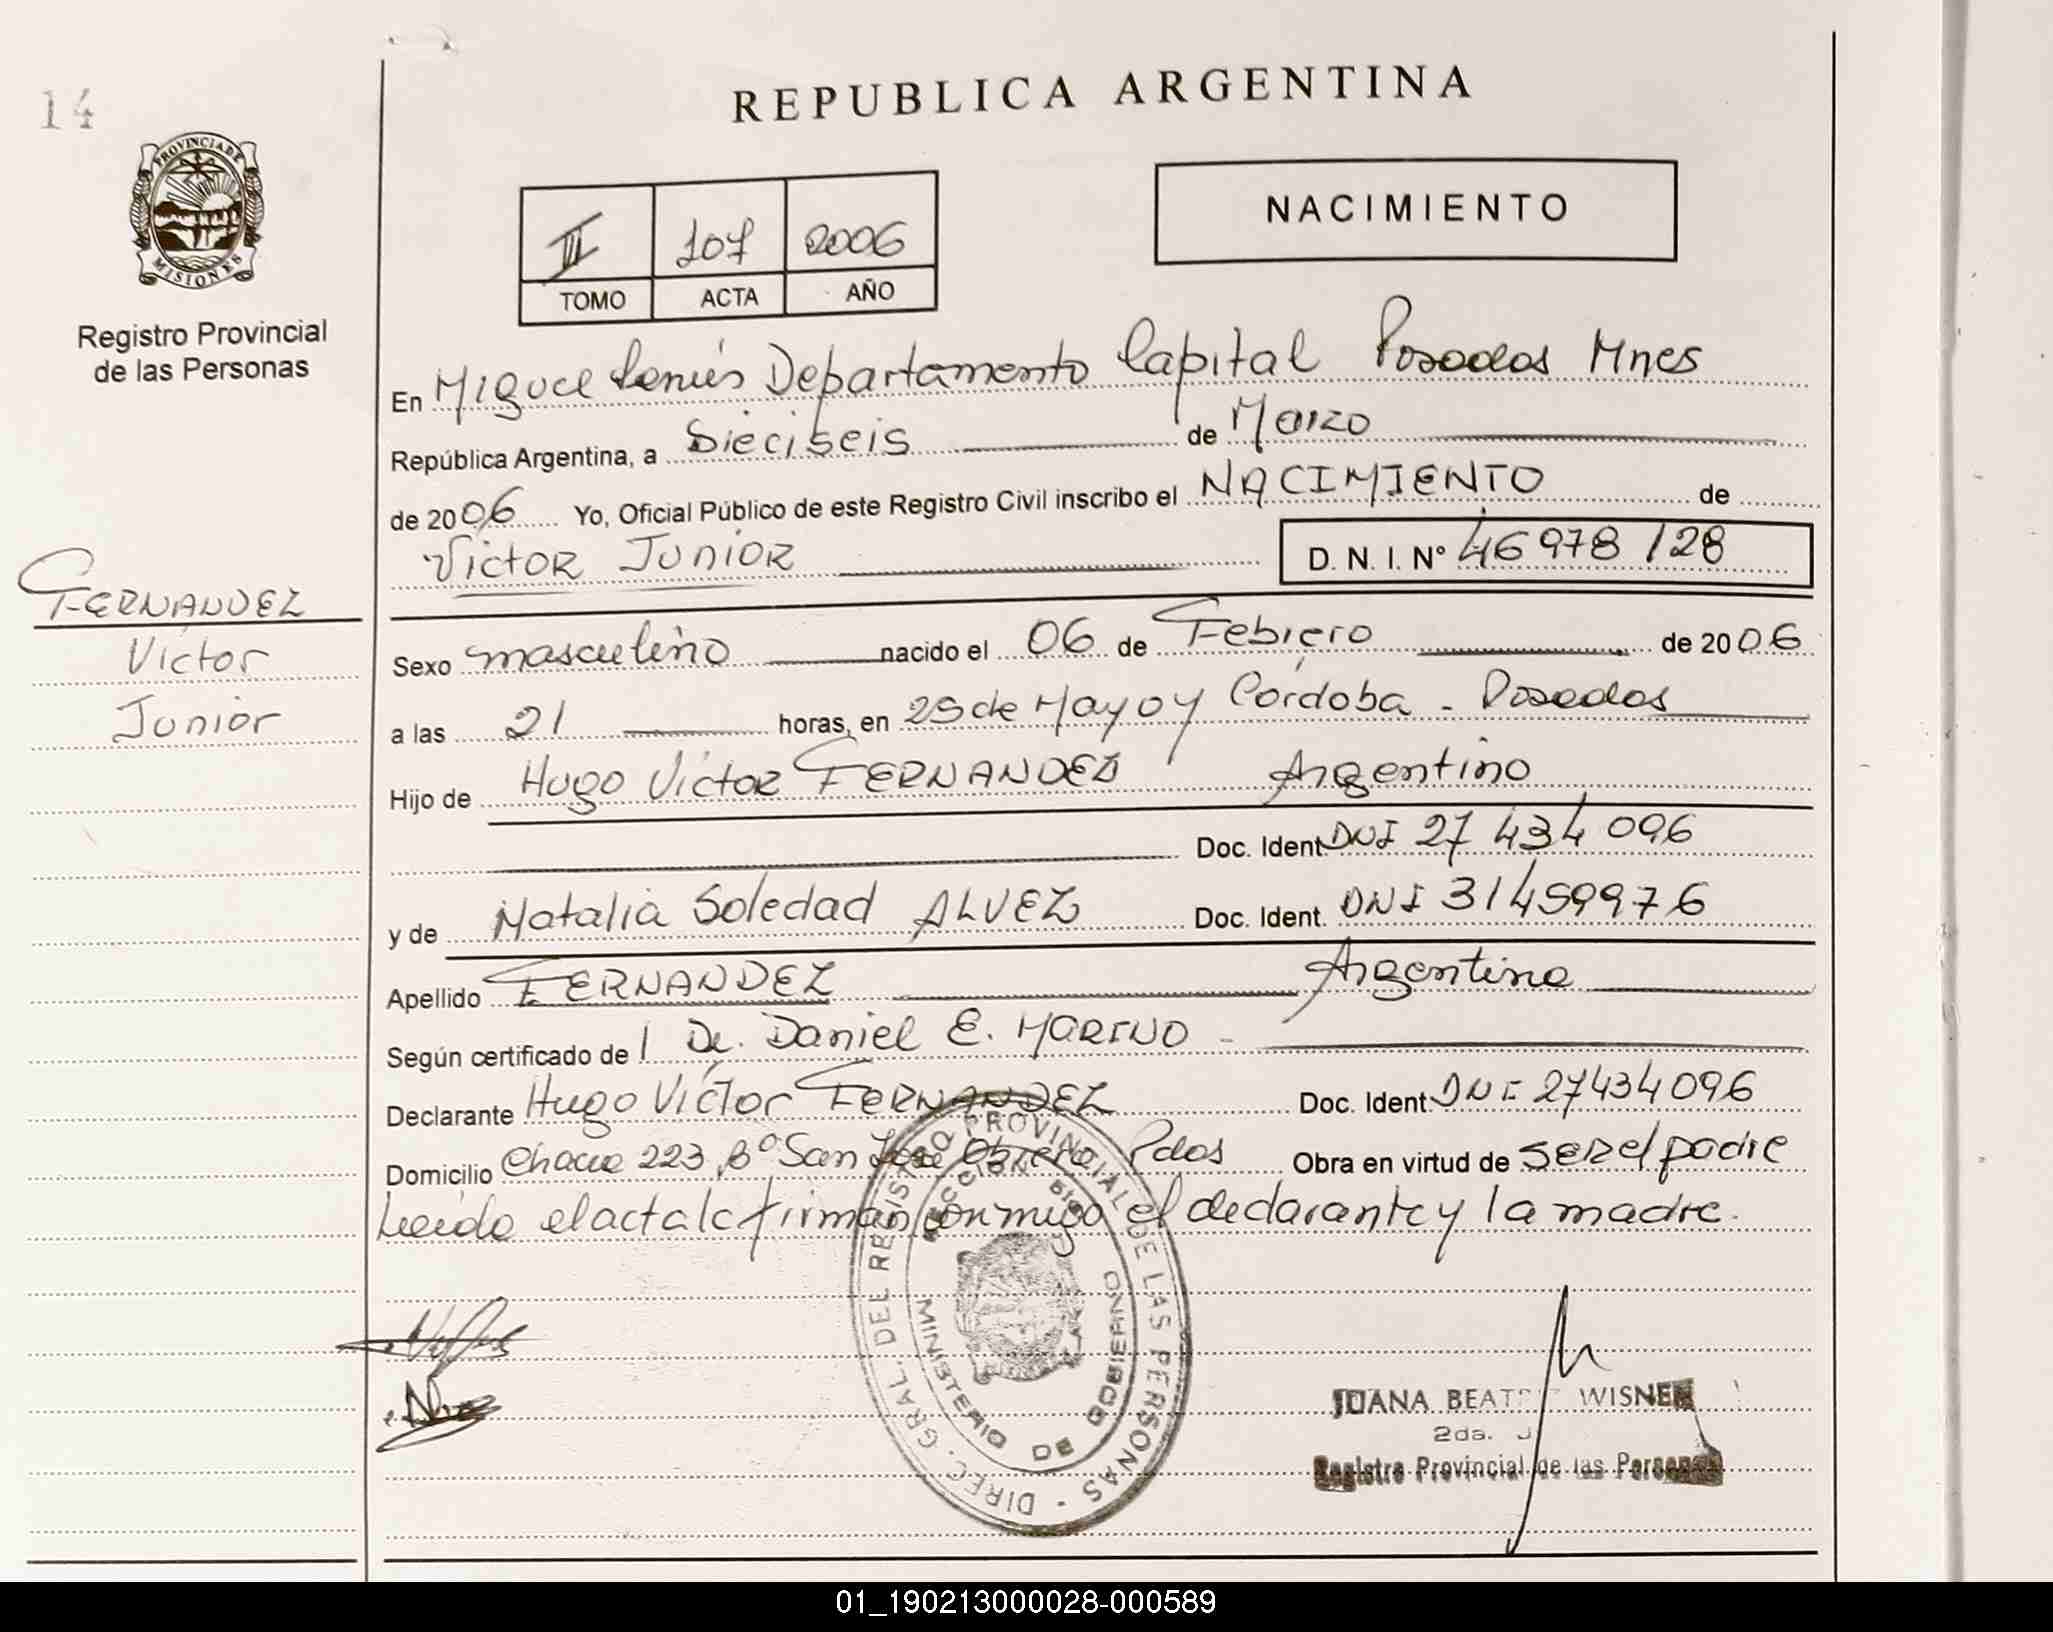 14
REPUBLICA ARGENTINA
PROVINCIA DE
MISIONES
Registro Provincial
de las Personas
NACIMIENTO
III 107 2006
TOMO ACTA AÑO
En Miguel Lanús Departamento Capital Posadas Mnes
República Argentina, a Dieciseis de Marzo
de 2006 Yo, Oficial Público de este Registro Civil inscribo el NACIMIENTO de
Victor Junior D. N. I. Nº 46978128
FERNANDEZ
Victor
Junior
Sexo masculino nacido el 06 de Febrero de 2006
a las 21 horas, en 25 de Mayo y Córdoba - Posadas
Hijo de Hugo Victor FERNANDEZ Argentino
Doc. Ident. DNI 27 434 096
y de Natalia Soledad ALVEZ Doc. Ident. DNI 31459976
Apellido FERNANDEZ Argentina
Según certificado de Dr. Daniel E. MARINO -
Declarante Hugo Victor FERNANDEZ Doc. Ident. DNI 27434096
Domicilio 223 Bº San José Obrero Pdas Obra en virtud de ser el padre
Leida el acta la firman conmigo el declarante y la madre.
DIREC. GRAL. DEL REGISTRO PROVINCIAL DE LAS PERSONAS -
MINISTERIO DE GOBIERNO
JUANA BEATRIZ WISNER
2da. J
Registro Provincial de las Personas
01_190213000028-000589